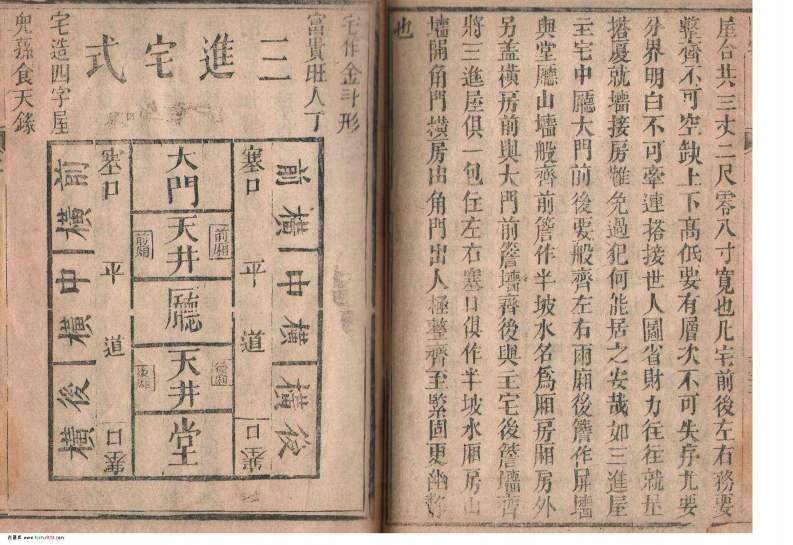 屋合共三丈二尺零八寸寬也凡宅前後左右務要
整齊不可空缺上下高低要有層次不可失序尤要
分界明白不可牽連搭接世人圖省財力往往就屋
搭廈就墻接房難免過犯何能居之安哉如三進屋
主宅中廳大門前後要般齊左右兩廂後簷作屏墻
與堂廳山墻般齊前簷作半坡水名為廂房廂房外
另盖橫房前與大門前簷墻齊後與主宅後簷墻齊
將三進屋俱一包在左右塞口俱作半坡水廂房山
墻開角門橫房出角門出人極整齊至緊固更幽靜
也
宅作金斗形
富貴旺人丁
三進宅式
宅造四字屋
兒孫食天祿
前橫 中橫 橫後
塞口 平道 塞口
大門 天井 廳 天井 堂
前廂 前廂 後廂 後廂
塞口 平道 塞口
前橫 中橫 後橫